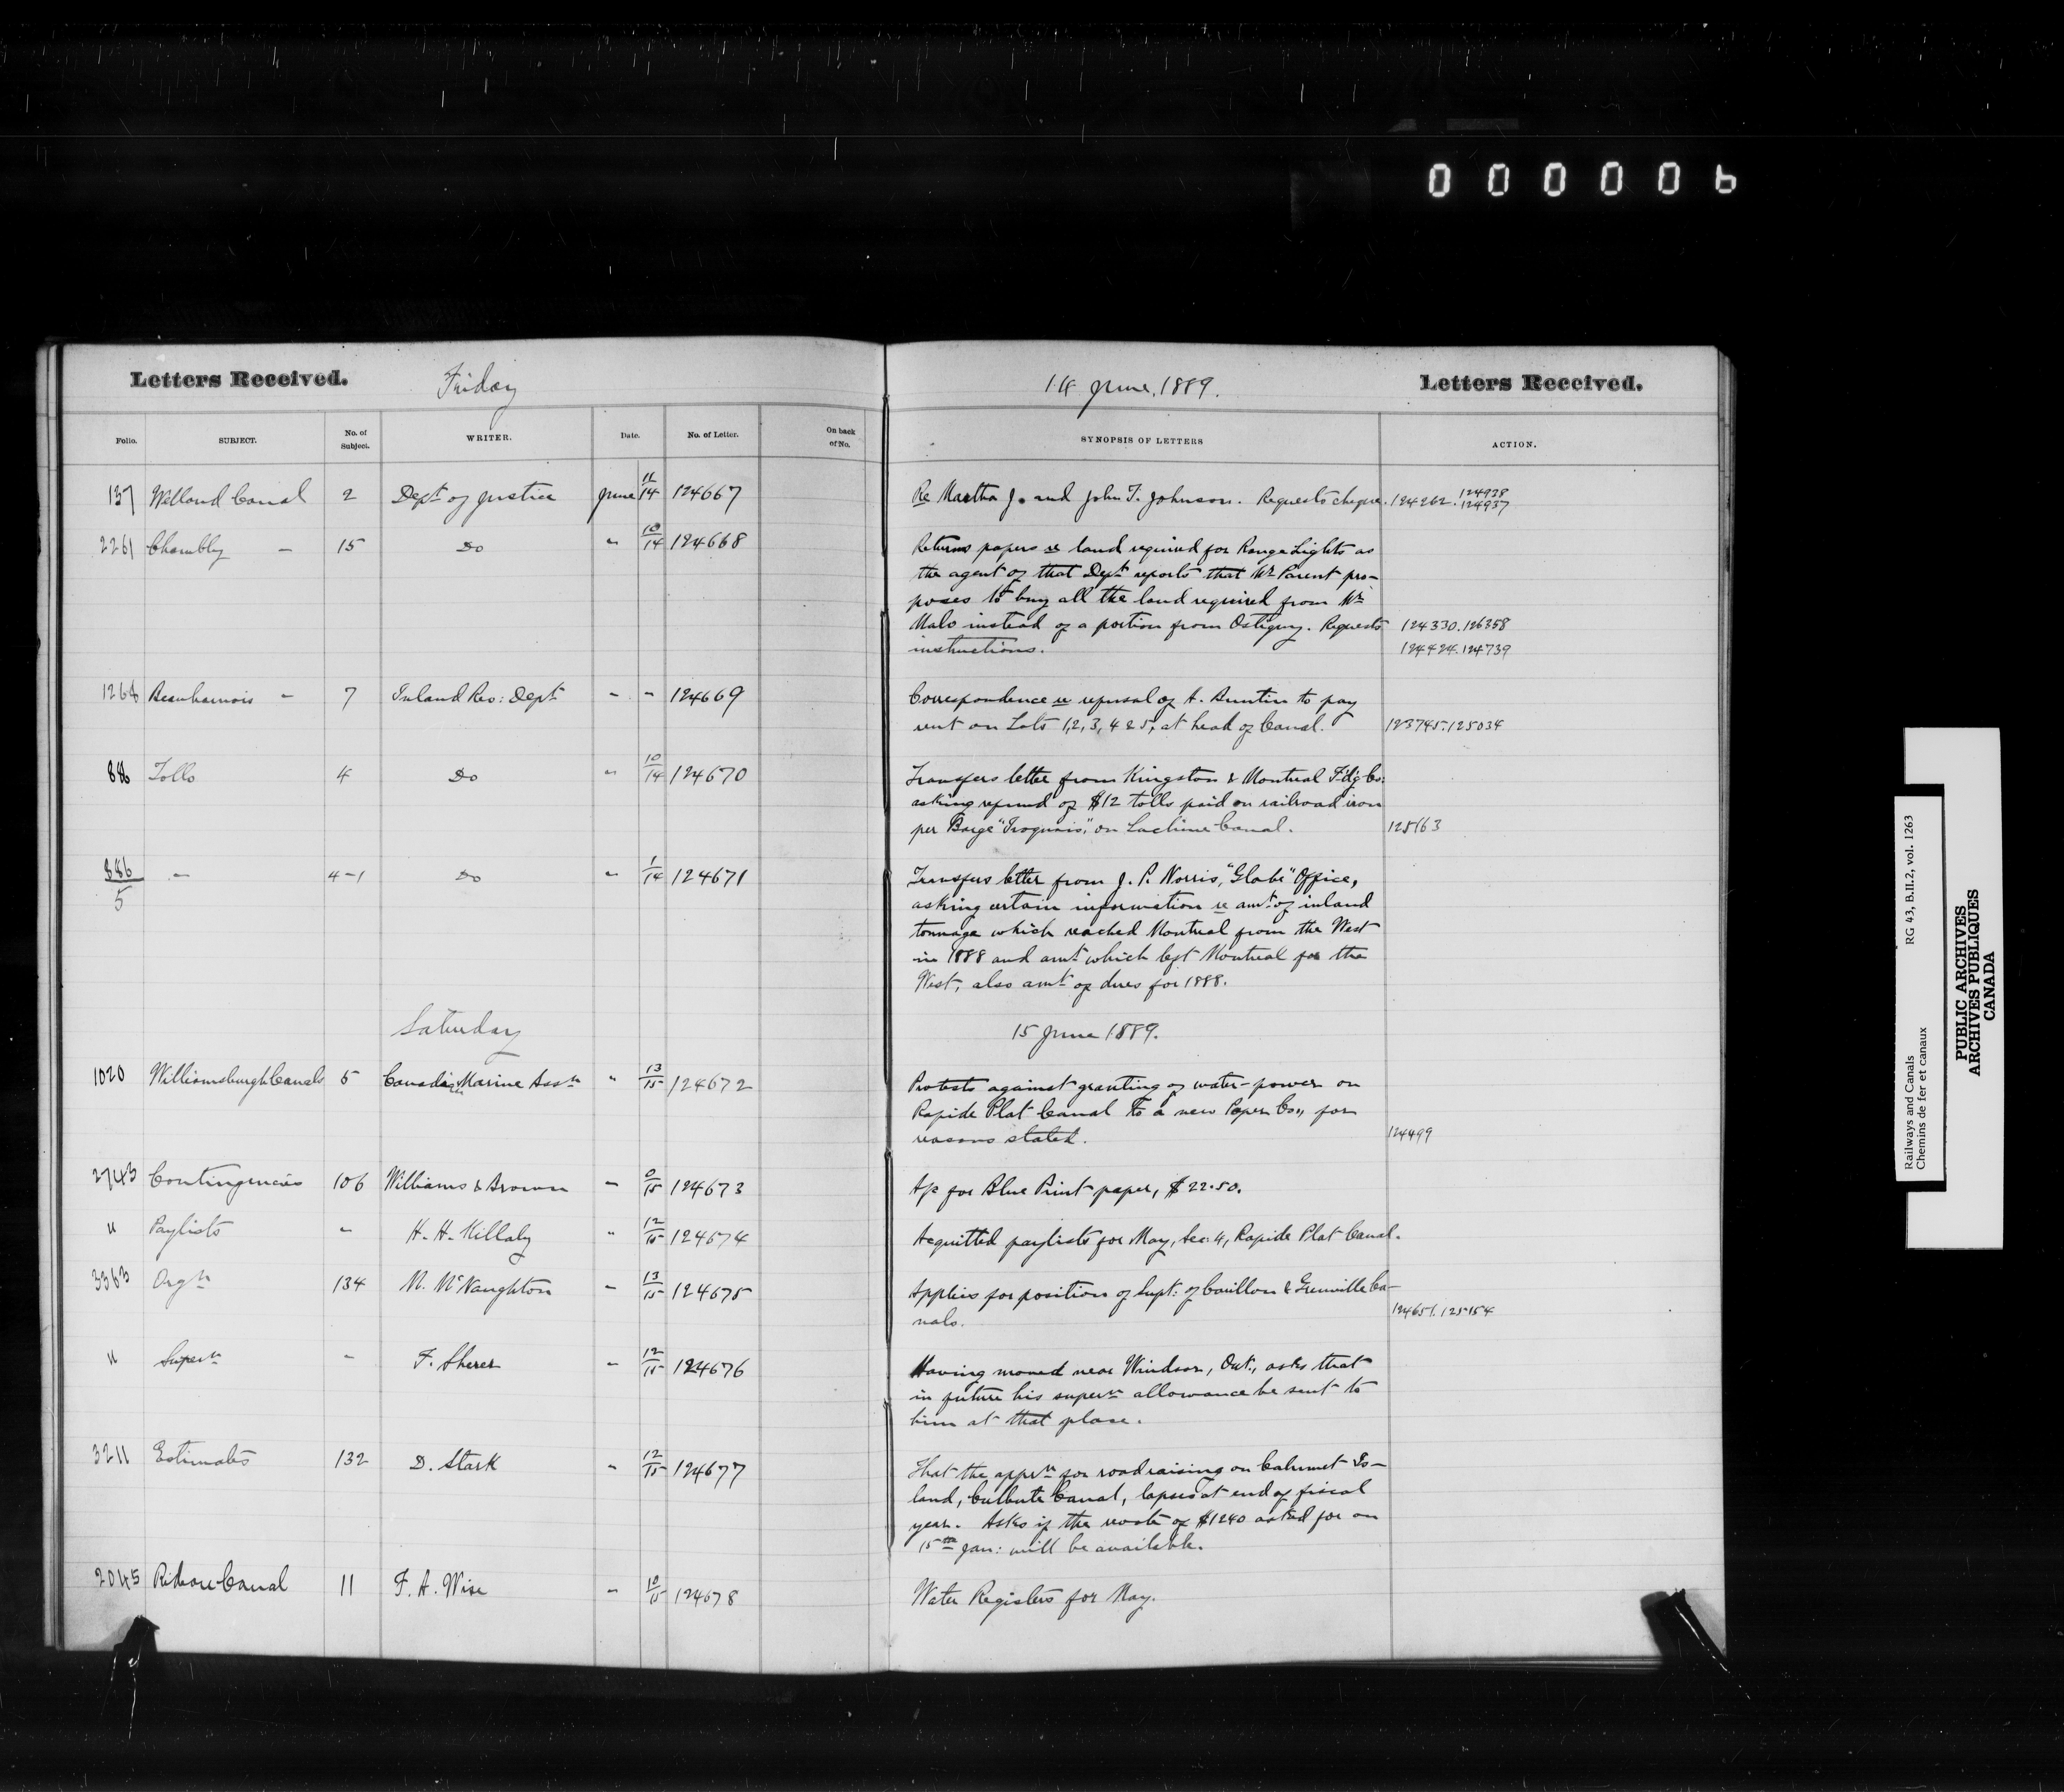 000006
Letters Received. Friday 14 June, 1889. Letters Received.
Folio. SUBJECT. No. of Subject. WRITER. Date. No. of Letter. On back of No. SYNOPSIS OF LETTERS ACTION.
137 Welland Canal 2 Dept of Justice June 11/14 124667 Re Martha J. and John T. Johnson. Requests cheque. 124262. 124938
124937
2261 Chambly - 15 Do " 10/14 124668 Returns papers re land required for Range Lights as
the agent of that Dept reports that Mr Parent pro-
poses to buy all the land required from Mr
Malo instead of a portion from Ostiguy. Requests 124330. 126358
instructions. 124424. 124739
1268 Beauharnois - 7 Inland Rev: Dept - - 124669 Correspondence re refusal of A. Buntin to pay
rent on Lots 1, 2, 3, 4 & 5, at head of Canal. 123745. 125034
886 Tolls 4 Do " 10/14 124670 Transfers letter from Kingston & Montreal F'd'g Co:
asking refund of $12 tolls paid on railroad iron
per Barge "Iroquois," on Lachine Canal. 125163
886/5 - 4-1 Do " 1/14 124671 Transfers letter from J. P. Norris, "Globe" Office,
asking certain information re amt of inland
tonnage which reached Montreal from the West
in 1888 and amt which left Montreal for the
West, also amt of dues for 1888.
Saturday 15 June 1889.
1020 Williamsburgh Canals 5 Canadian Marine Assn " 13/15 124672 Protests against granting of water-power on
Rapide Plat Canal to a new Paper Co., for
reasons stated. 124499
2743 Contingencies 106 Williams & Brown - 0/15 124673 A/c for Blue Print paper, $22.50.
" Paylists - H. H. Killaly " 12/15 124674 Acquitted paylists for May, Sec: 4, Rapide Plat Canal.
3363 Orgn 134 N. McNaughton - 13/15 124675 Applies for position of Supt: of Carillon & Grenville Ca-
nals. 124651. 125154
" Supern - F. Sherer - 12/15 124676 Having moved near Windsor, Ont., asks that
in future his supern allowance be sent to
him at that place.
3211 Estimates 132 D. Stark " 12/15 124677 That the apprn for road raising on Calumet Is-
land, Culbute Canal, lapses at end of fiscal
year. Asks if the revote of $1240 asked for on
15th Jan: will be available.
2045 Rideau Canal 11 F. A. Wise - 10/15 124678 Water Registers for May.
Railways and Canals RG 43, B.II.2, vol. 1263
Chemins de fer et canaux
PUBLIC ARCHIVES
ARCHIVES PUBLIQUES
CANADA